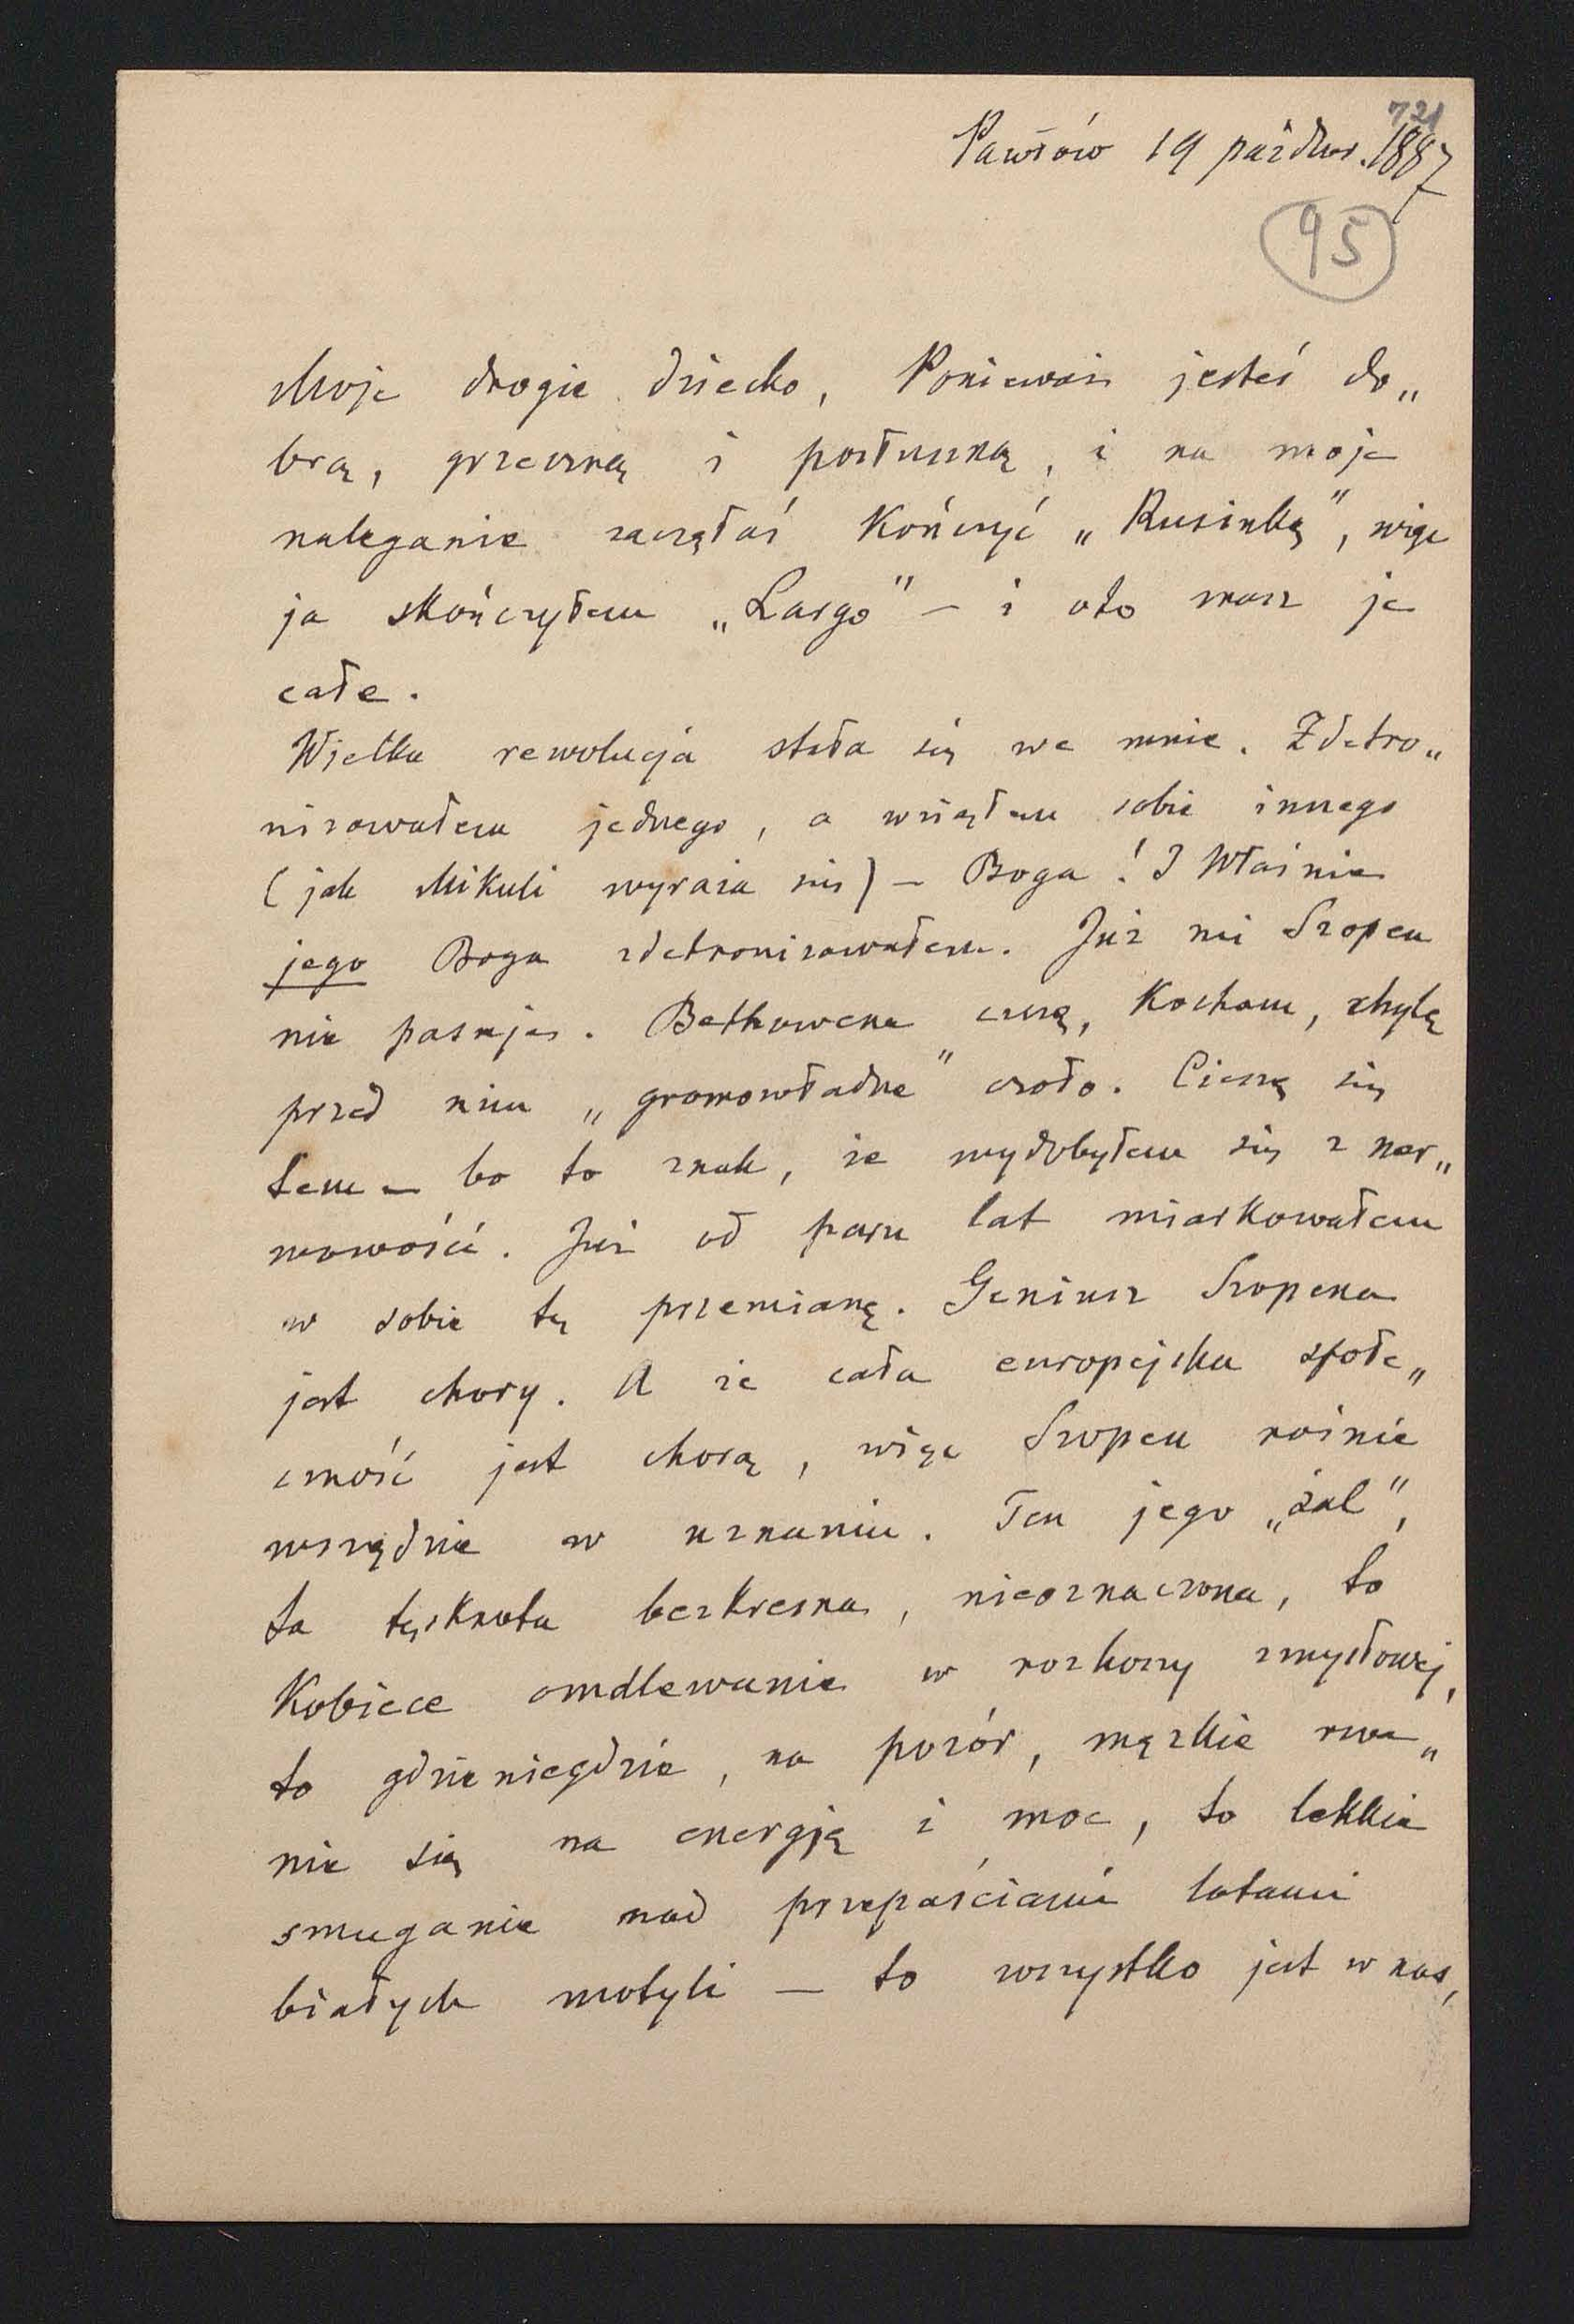 721
Pawłów 19 paźdwr. 1887
95
Moje drogie dziecko, Ponieważ jesteś do„
brą, grzeczną i posłuszną, i na moje
naleganie zaczęłaś kończyć „Rusinkę", więc
ja skończyłem „Largo" — i oto masz je
całe.
Wielka rewolucja stała się we mnie. Zdetro„
nizowałem jednego, a wziąłem sobie innego
(jak Mikuli wyraża się) — Boga! I właśnie
jego Boga zdetronizowałem. Już mi Szopen
nie pasuje. Bethowena czczę, kocham, chylę
przed nim „gromowładne" czoło. Cieszę się
tem — bo to znak, że wydobyłem się z ner„
wowości. Już od paru lat miarkowałem
w sobie tę przemianę. Geniusz Szopena
jest chory. A że cała europejska społe„
czność jest chorą, więc Szopen rośnie
wszędzie w uznaniu. Ten jego „żal",
ta tęsknota bezkresna, nieoznaczona, to
kobiece omdlewanie w rozkoszy zmysłowej,
to gdzieniegdzie, na pozór, męzkie rwa„
nie się na energję i moc, to lekkie
smuganie nad przepaściami lotami
białych motyli — to wszystko jest w nas,